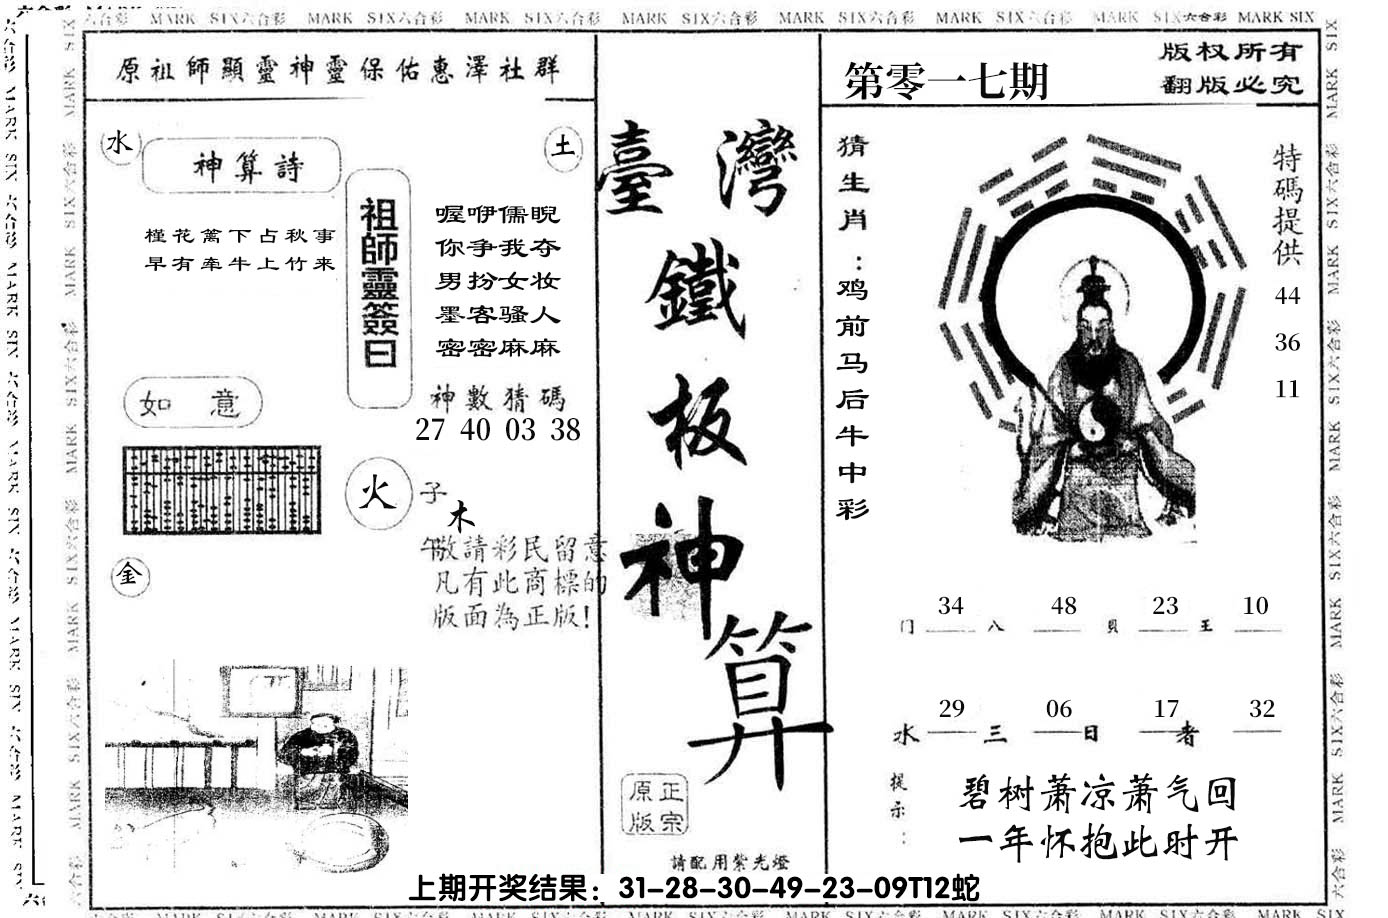 MARK SIX六合彩 MARK SIX六合彩 MARK SIX六合彩 MARK SIX六合彩 MARK SIX六合彩 MARK SIX六合彩 MARK SIX六合彩 MARK SIX
原祖師顯靈神靈保佑惠澤社群
水
神算詩
土
槿花篱下占秋事
早有牵牛上竹来
祖師靈簽曰
喔咿儒睨
你争我夺
男扮女妆
墨客骚人
密密麻麻
神數猜碼
27 40 03 38
如意
火
子
木
午
敬請彩民留意
凡有此商標的
版面為正版!
金
臺灣
鐵
板
神
算
正宗
原版
請配用紫光燈
第零一七期
版权所有
翻版必究
猜生肖：鸡前马后牛中彩
特碼提供
44
36
11
34 48 23 10
门 八 貝 王
29 06 17 32
水 三 日 者
提示：
碧树萧凉萧气回
一年怀抱此时开
上期开奖结果：31-28-30-49-23-09T12蛇